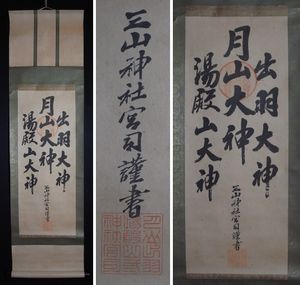 出羽大神
月山大神
湯殿山大神
三山神社宮司謹書
三山神社宮司謹書
出羽大神
月山大神
湯殿山大神
三山神社宮司謹書